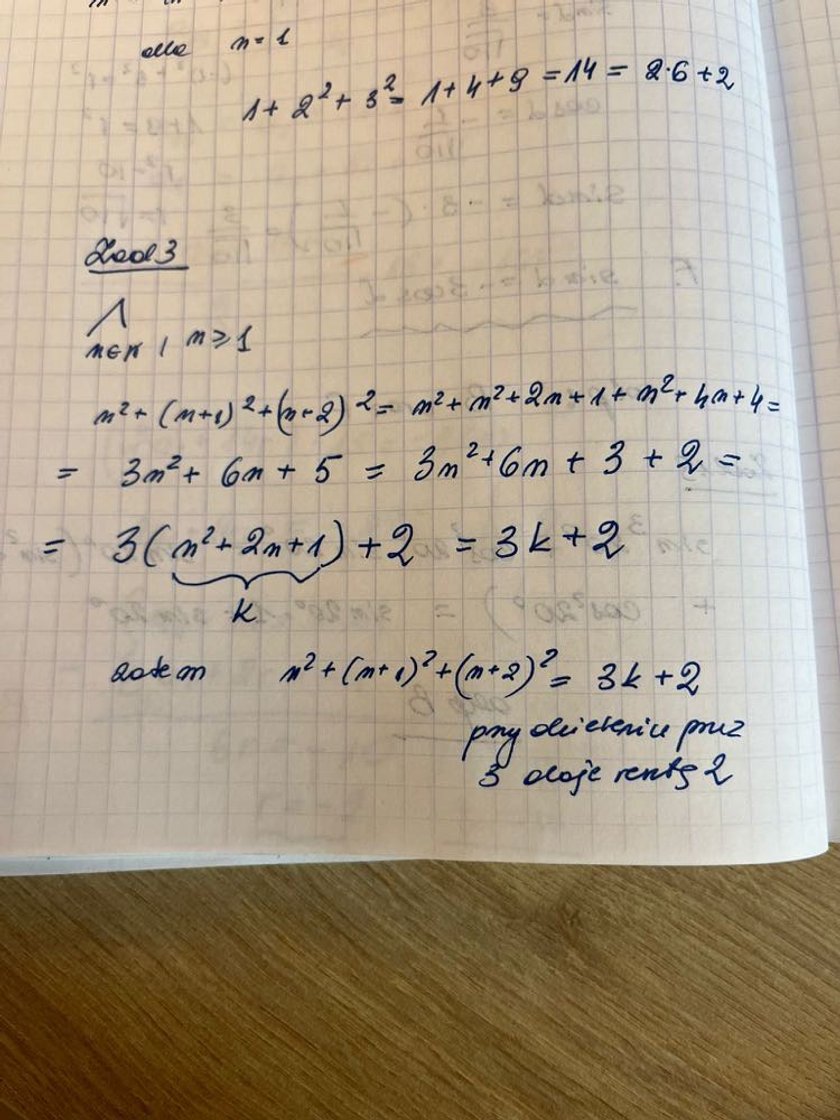 dla n=1
1 + 2² + 3² = 1 + 4 + 9 = 14 = 2·6 + 2
Zad 3
⋀
n∈N, n ⩾ 1
n² + (n+1)² + (n+2)² = n² + n² + 2n + 1 + n² + 4n + 4 =
= 3n² + 6n + 5 = 3n² + 6n + 3 + 2 =
= 3(n² + 2n + 1) + 2 = 3k + 2
k
zatem n² + (n+1)² + (n+2)² = 3k + 2
przy dzieleniu przez
3 daje resztę 2